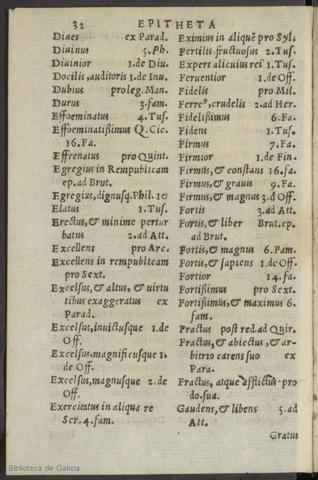 32 EPITHETA
Diues ex Parad.
Diuinus 5.Ph.
Diuinior 1.de Diu.
Docilis, auditoris 1.de Inu.
Dubius pro leg. Man.
Durus 3.fam.
Effoeminatus 4.Tus.
Effoeminatißimus Q. Cic.
16.Fa.
Effrenatus pro Quint.
Egregius in Rempublicam
ep.ad Brut.
Egregius, dignusq́. Phil.10
Elatus 1.Tus.
Erectus, & minime pertur
batus 2.ad Att.
Excellens pro Arc.
Excellens in rempublicam
pro Sext.
Excelsus, & altus, & uirtu
tibus exaggeratus ex
Parad.
Excelsus, inuictusque 1.de
Off.
Excelsus, magnificusque 1.
de Off.
Excelsus, magnusque 2.de
Off.
Exercitatus in aliqua re
Scr.4.fam.
Eximius in aliquẽ pro Syl.
Fertilis. fructuosus 2.Tus.
Expers alicuius rei 1.Tus.
Feruentior 1.de Off.
Fidelis pro Mil.
Ferreꝰ, crudelis 2.ad Her.
Fidelißimus 6.Fa.
Fidens 1.Tus.
Firmus 7.Fa.
Firmior 1.de Fin.
Firmus, & constans 16.fa.
Firmus, & grauis 9.Fa.
Firmus, & magnus 3.d Off.
Fortis 3.ad Att.
Fortis, & liber Brut.ep.
ad Brut.
Fortis, & magnus 6.Fam.
Fortis, & sapiens 1.de Off.
Fortior 14.fa.
Fortißimus pro Sext.
Fortißimus, & maximus 6.
fam.
Fractus post red.ad Quir.
Fractus, & abiectus, & ar-
bitrio carens suo ex
Para.
Fractus, atque afflictus pro
do.sua.
Gaudens, & libens 5.ad
Att.
Gratus
Biblioteca de Galicia